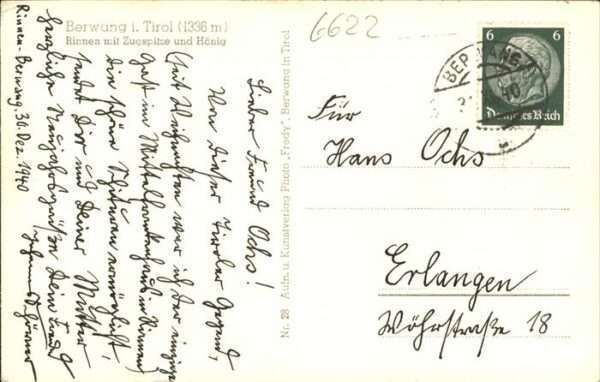 Berwang i. Tirol (1336 m)
Rinnen mit Zugspitze und Hönig
Rinnen-Berwang, 30. Dez. 1940
Lieber Freund Ochs!
Von dieser Tiroler Gegend,
(seit Weihnachten war ich der einzige
Gast im Mittelfrankenhaus in Rinnen)
die schöne Skituren ermöglicht,
sendet Dir und Deiner Mutter
herzliche Neujahrsgrüße Dein Freund
Nr. 28 Aufn. u. Kunstverlag Photo „Fredy", Berwang in Tirol
6622
6 6
Deutsches Reich
BERWANG
40
Für
Hans Ochs
Erlangen
Wöhrstraße 18